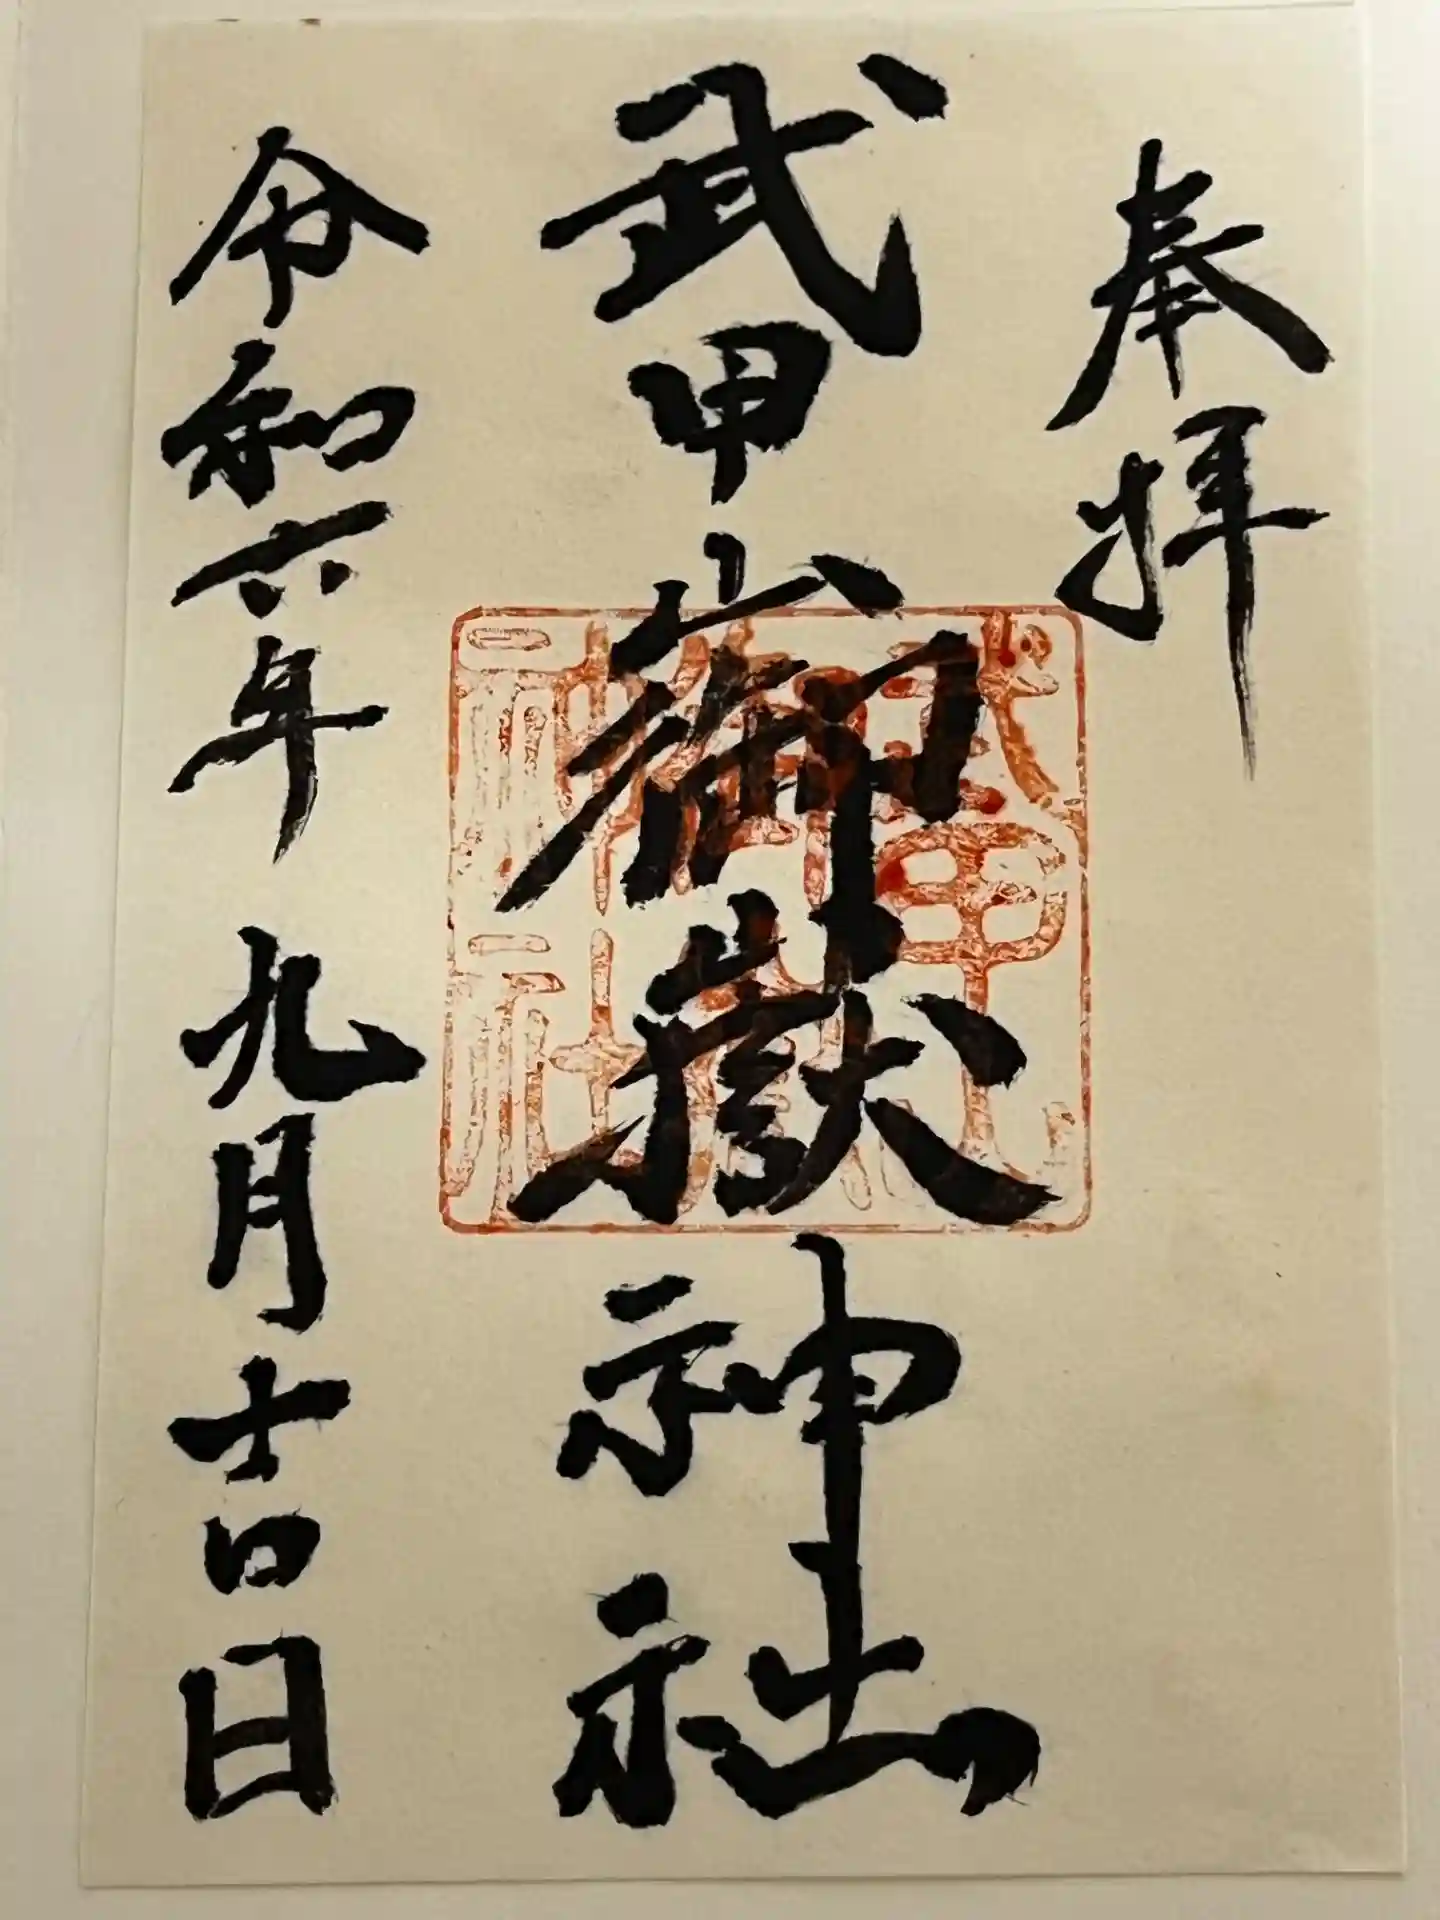 奉拝
武甲山御嶽神社
令和六年九月吉日
武甲山
御嶽
神社